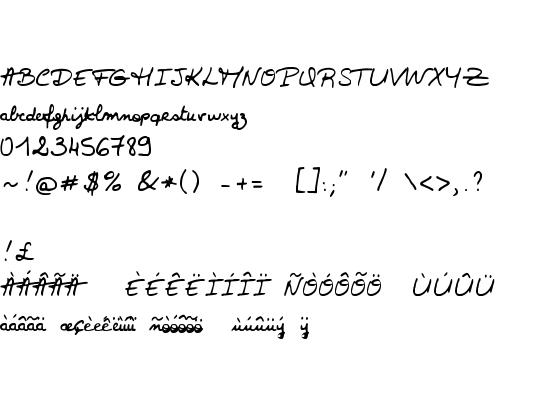 ABCDEFGHIJKLMNOPQRSTUVWXYZ
abcdefghijklmnopqrstuvwxyz
0123456789
~!@#$% &*() -+= []:;" '/ \<>,.?
!£
ÀÁÂÃÄ ÈÉÊËÌÍÎÏ ÑÒÓÔÕÖ ÙÚÛÜ
àáâãä æçèéêëìíîï ñòóôõö ùúûüý ÿ